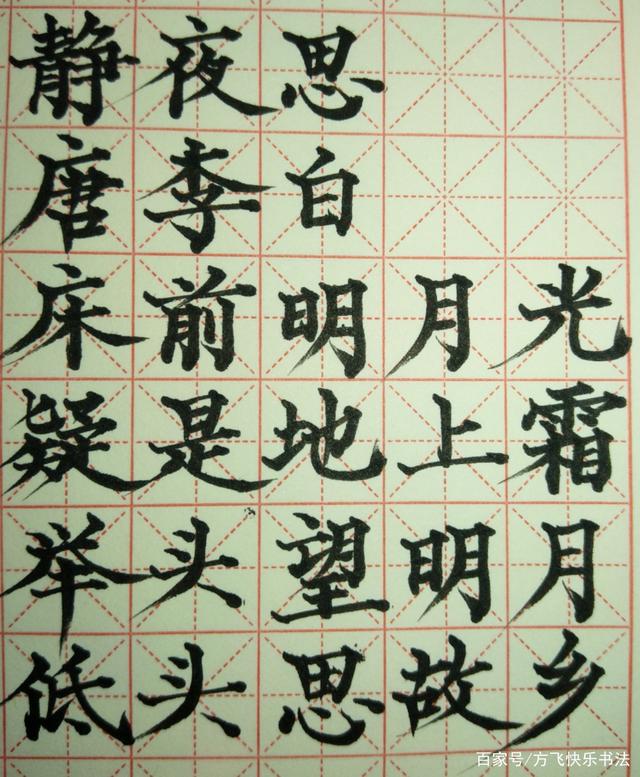 静夜思
唐李白
床前明月光
疑是地上霜
举头望明月
低头思故乡
百家号/方飞快乐书法